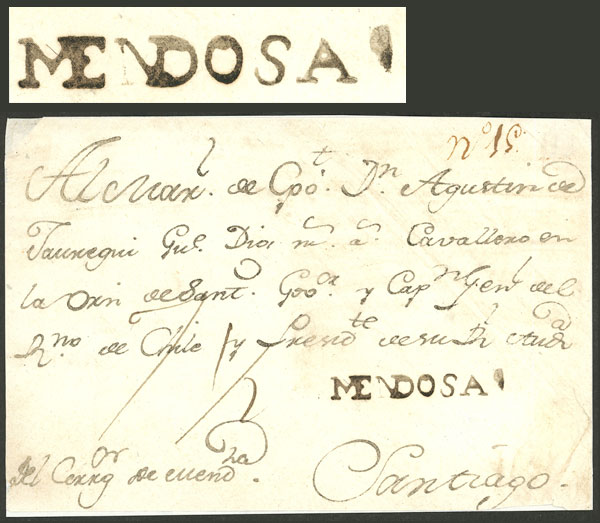 MENDOSA
nº 15
Al Mar. l de Cpo. t Dn. Agustin de
Jauregui Gue. Dios m. s a. s Cavallero en
la Orn de Sant. o Goor. y Capn Genl del
Rno de Chile y Presid te de su Rl Auda
MENDOSA
del Corrgor de Mendza.
Santiago.